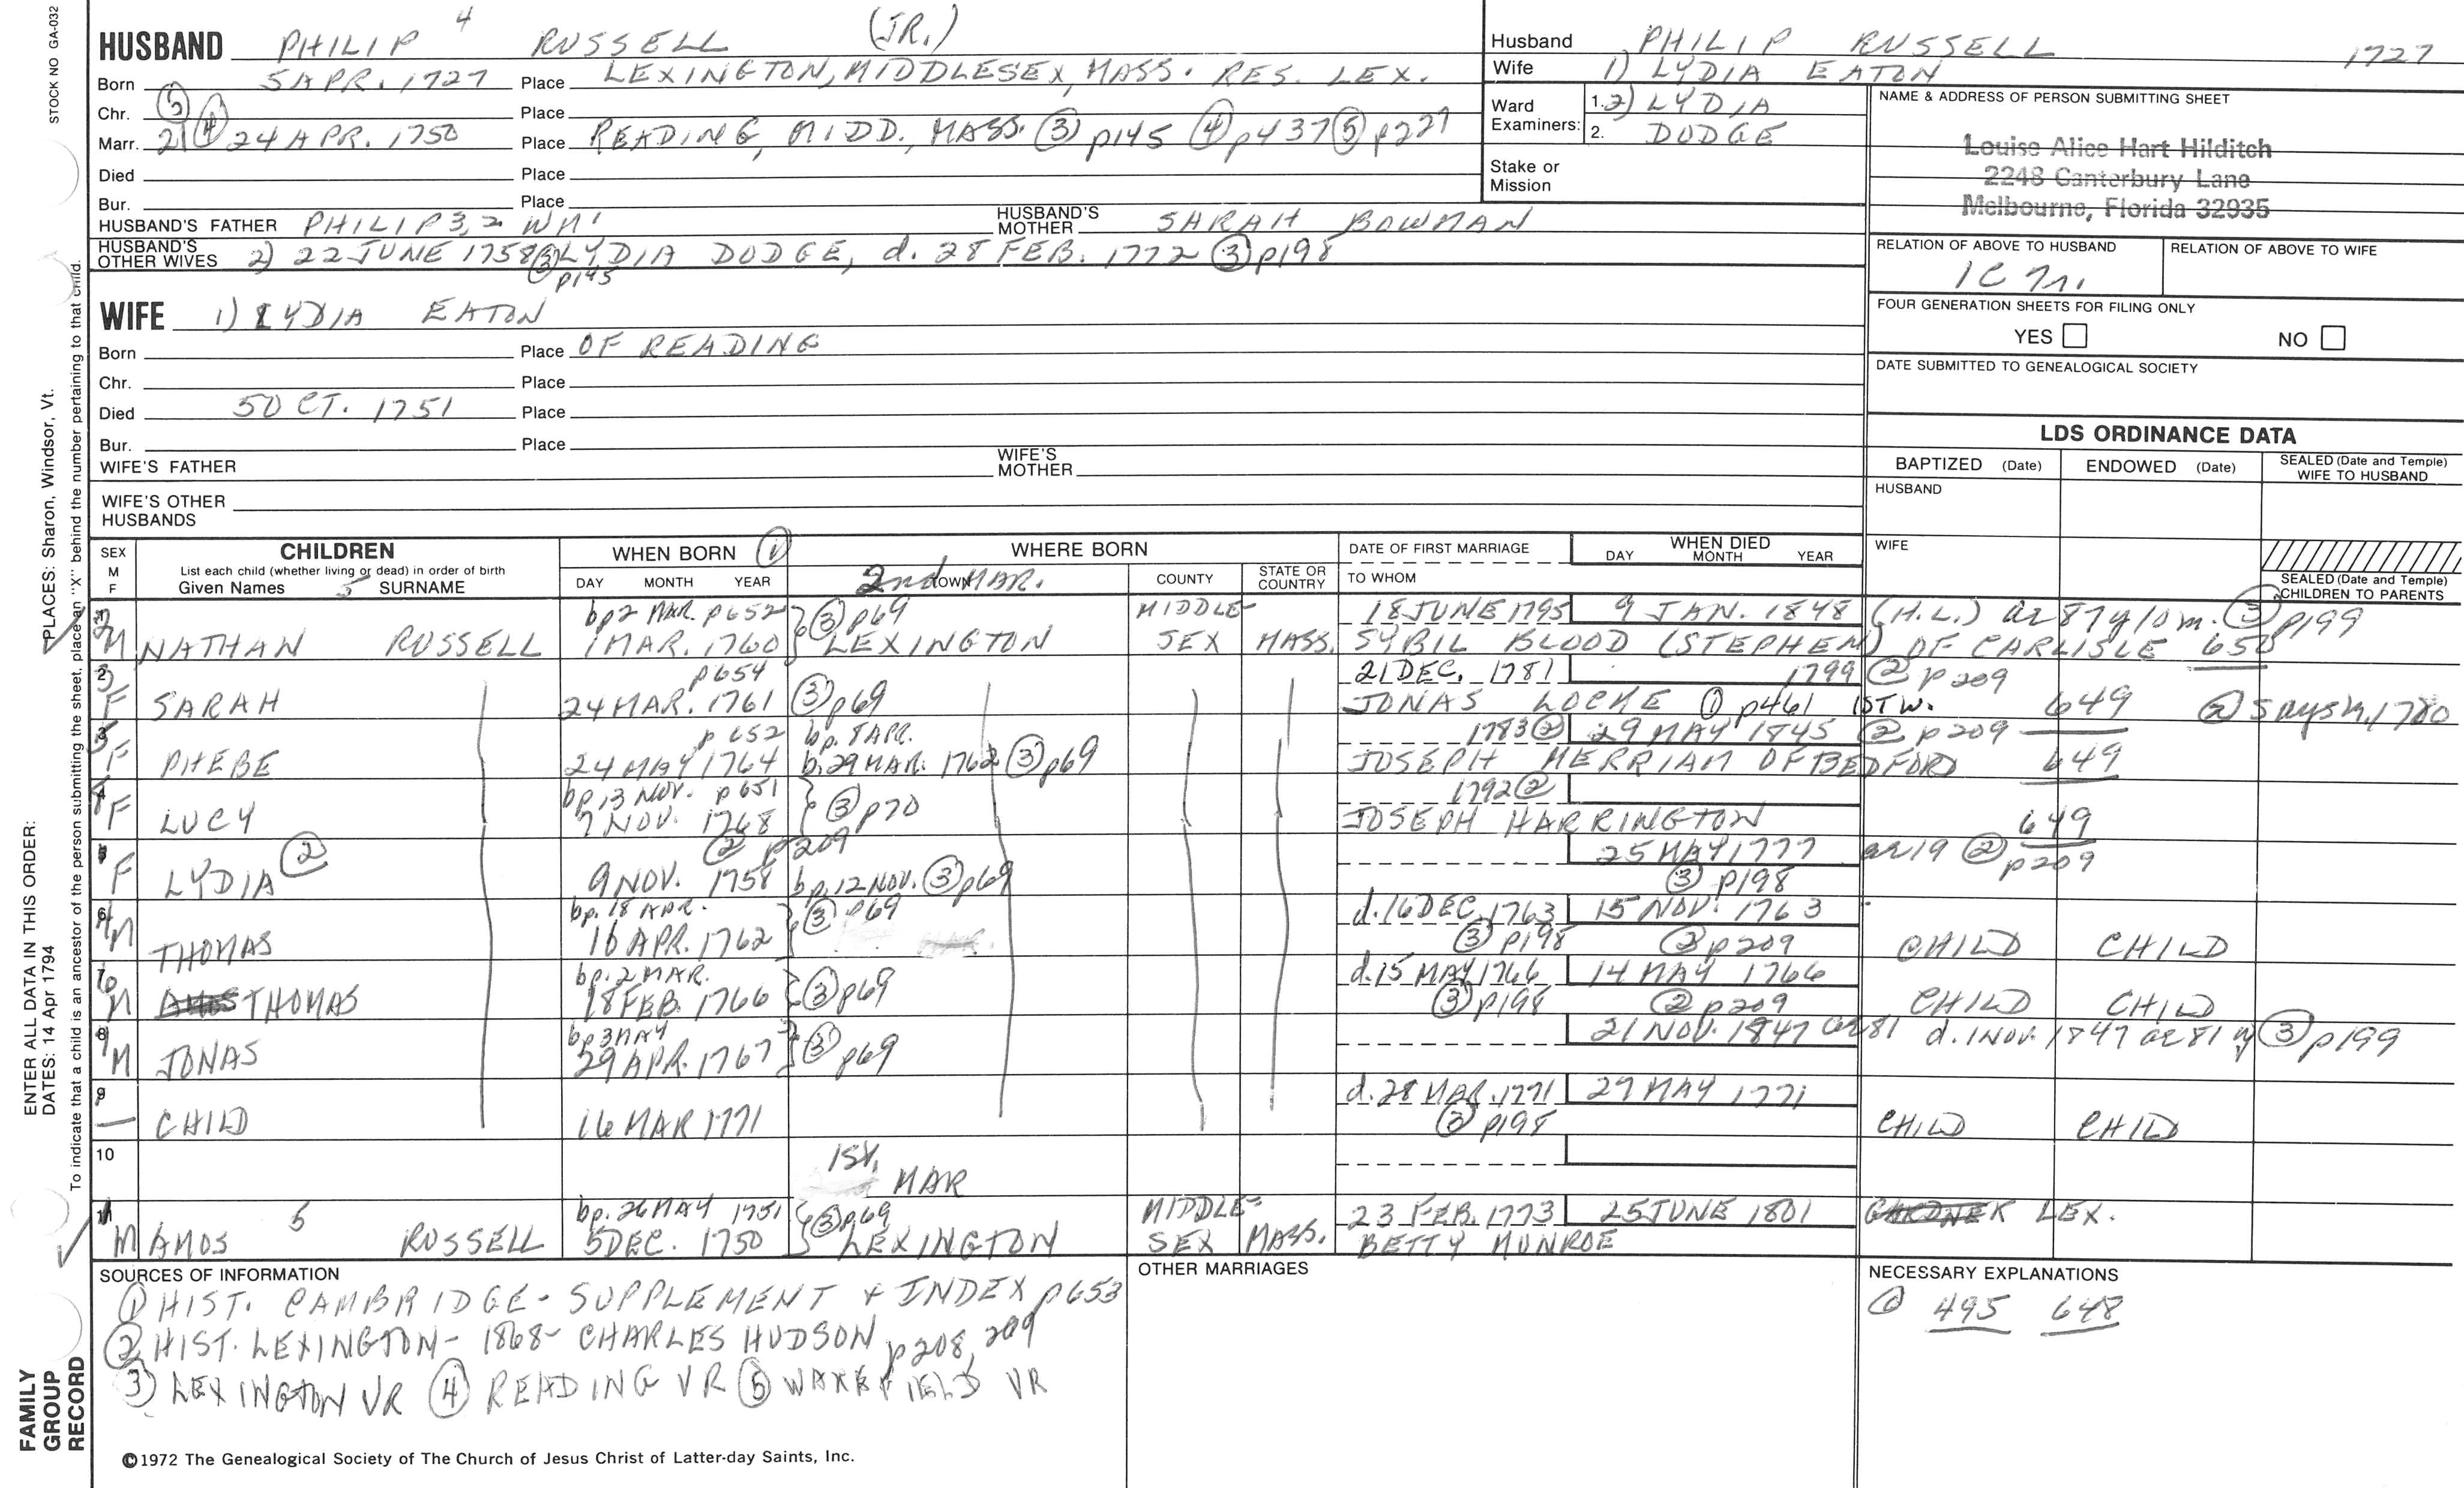 STOCK NO GA-032
HUSBAND PHILIP 4 RUSSELL (JR.)
Born 5 APR. 1727 Place LEXINGTON, MIDDLESEX, MASS. RES. LEX.
Chr. Place
Marr. 21 ④ ⑤ 24 APR. 1750 Place READING, MIDD., MASS. ③ p145 ④ p437 ⑤ p227
Died Place
Bur. Place
HUSBAND'S FATHER PHILIP 3, 2 WM'
HUSBAND'S MOTHER SARAH BOWMAN
HUSBAND'S OTHER WIVES 2) 22 JUNE 1758 ③ LYDIA DODGE, d. 28 FEB. 1772 ③ p198
p145
WIFE 1) LYDIA EATON
Born Place OF READING
Chr. Place
Died 5 OCT. 1751 Place
Bur. Place
WIFE'S FATHER
WIFE'S MOTHER
WIFE'S OTHER HUSBANDS
Husband PHILIP RUSSELL 1727
Wife 1) LYDIA EATON
Ward Examiners: 1. 2) LYDIA
2. DODGE
Stake or Mission
NAME & ADDRESS OF PERSON SUBMITTING SHEET
Louise Alice Hart Hilditch
2248 Canterbury Lane
Melbourne, Florida 32935
RELATION OF ABOVE TO HUSBAND
RELATION OF ABOVE TO WIFE
FOUR GENERATION SHEETS FOR FILING ONLY
YES NO
DATE SUBMITTED TO GENEALOGICAL SOCIETY
LDS ORDINANCE DATA
BAPTIZED (Date) ENDOWED (Date) SEALED (Date and Temple) WIFE TO HUSBAND
HUSBAND
WIFE
SEALED (Date and Temple) CHILDREN TO PARENTS
SEX M F
CHILDREN
List each child (whether living or dead) in order of birth
Given Names 5 SURNAME
WHEN BORN ①
DAY MONTH YEAR
WHERE BORN
2nd MAR. TOWN COUNTY STATE OR COUNTRY
DATE OF FIRST MARRIAGE
TO WHOM
WHEN DIED
DAY MONTH YEAR
bp 2 MAR. p652 ③ p69 MIDDLE- 18 JUNE 1795 9 JAN. 1848 (H.L.) ae 87 y 10 m. ③ p199
M NATHAN RUSSELL 1 MAR. 1760 LEXINGTON SEX MASS. SYBIL BLOOD (STEPHEN) OF CARLISLE 650
2 p654 21 DEC. 1781 1799 ② p209
F SARAH 24 MAR. 1761 ③ p69 JONAS LOCKE ① p461 1ST W. 649 ② says m. 1780
3 p652 bp. 8 APR. 1783 ② 29 MAY 1845 ② p209
F PHEBE 24 MAY 1764 b. 29 MAR. 1762 ③ p69 JOSEPH MERRIAM OF BEDFORD 649
4 bp 13 NOV. p651 ③ p70 1792 ②
F LUCY 7 NOV. 1768 JOSEPH HARRINGTON 649
5 ② p209 25 MAY 1777 ae 19 ② p209
F LYDIA ② 9 NOV. 1758 bp. 12 NOV. ③ p69 ③ p198
6 bp. 18 APR. ③ p69 d. 16 DEC. 1763 15 NOV. 1763
M THOMAS 16 APR. 1762 ③ p198 ② p209 CHILD CHILD
7 bp. 2 MAR. d. 15 MAY 1766 14 MAY 1766
M AMOS THOMAS 18 FEB. 1766 ③ p69 ③ p198 ② p209 CHILD CHILD
8 bp 3 MAY 21 NOV. 1847 ae 81 d. 1 NOV. 1847 ae 81 y ③ p199
M JONAS 29 APR. 1767 ③ p69
9 d. 28 MAR. 1771 27 MAY 1771
— CHILD 16 MAR 1771 ③ p198 CHILD CHILD
10 1st MAR
11 5 bp. 26 MAY 1751 ③ p69 MIDDLE- 23 FEB. 1773 25 JUNE 1801 LEX.
M AMOS RUSSELL 5 DEC. 1750 LEXINGTON SEX MASS. BETTY MUNROE
SOURCES OF INFORMATION
① HIST. CAMBRIDGE - SUPPLEMENT & INDEX p653
② HIST. LEXINGTON - 1868 - CHARLES HUDSON p208, 209
③ LEXINGTON VR ④ READING VR ⑤ WAKEFIELD VR
OTHER MARRIAGES
NECESSARY EXPLANATIONS
① 495 648
©1972 The Genealogical Society of The Church of Jesus Christ of Latter-day Saints, Inc.
FAMILY GROUP RECORD
ENTER ALL DATA IN THIS ORDER:
DATES: 14 Apr 1794
PLACES: Sharon, Windsor, Vt.
To indicate that a child is an ancestor of the person submitting the sheet, place an "X" behind the number pertaining to that child.